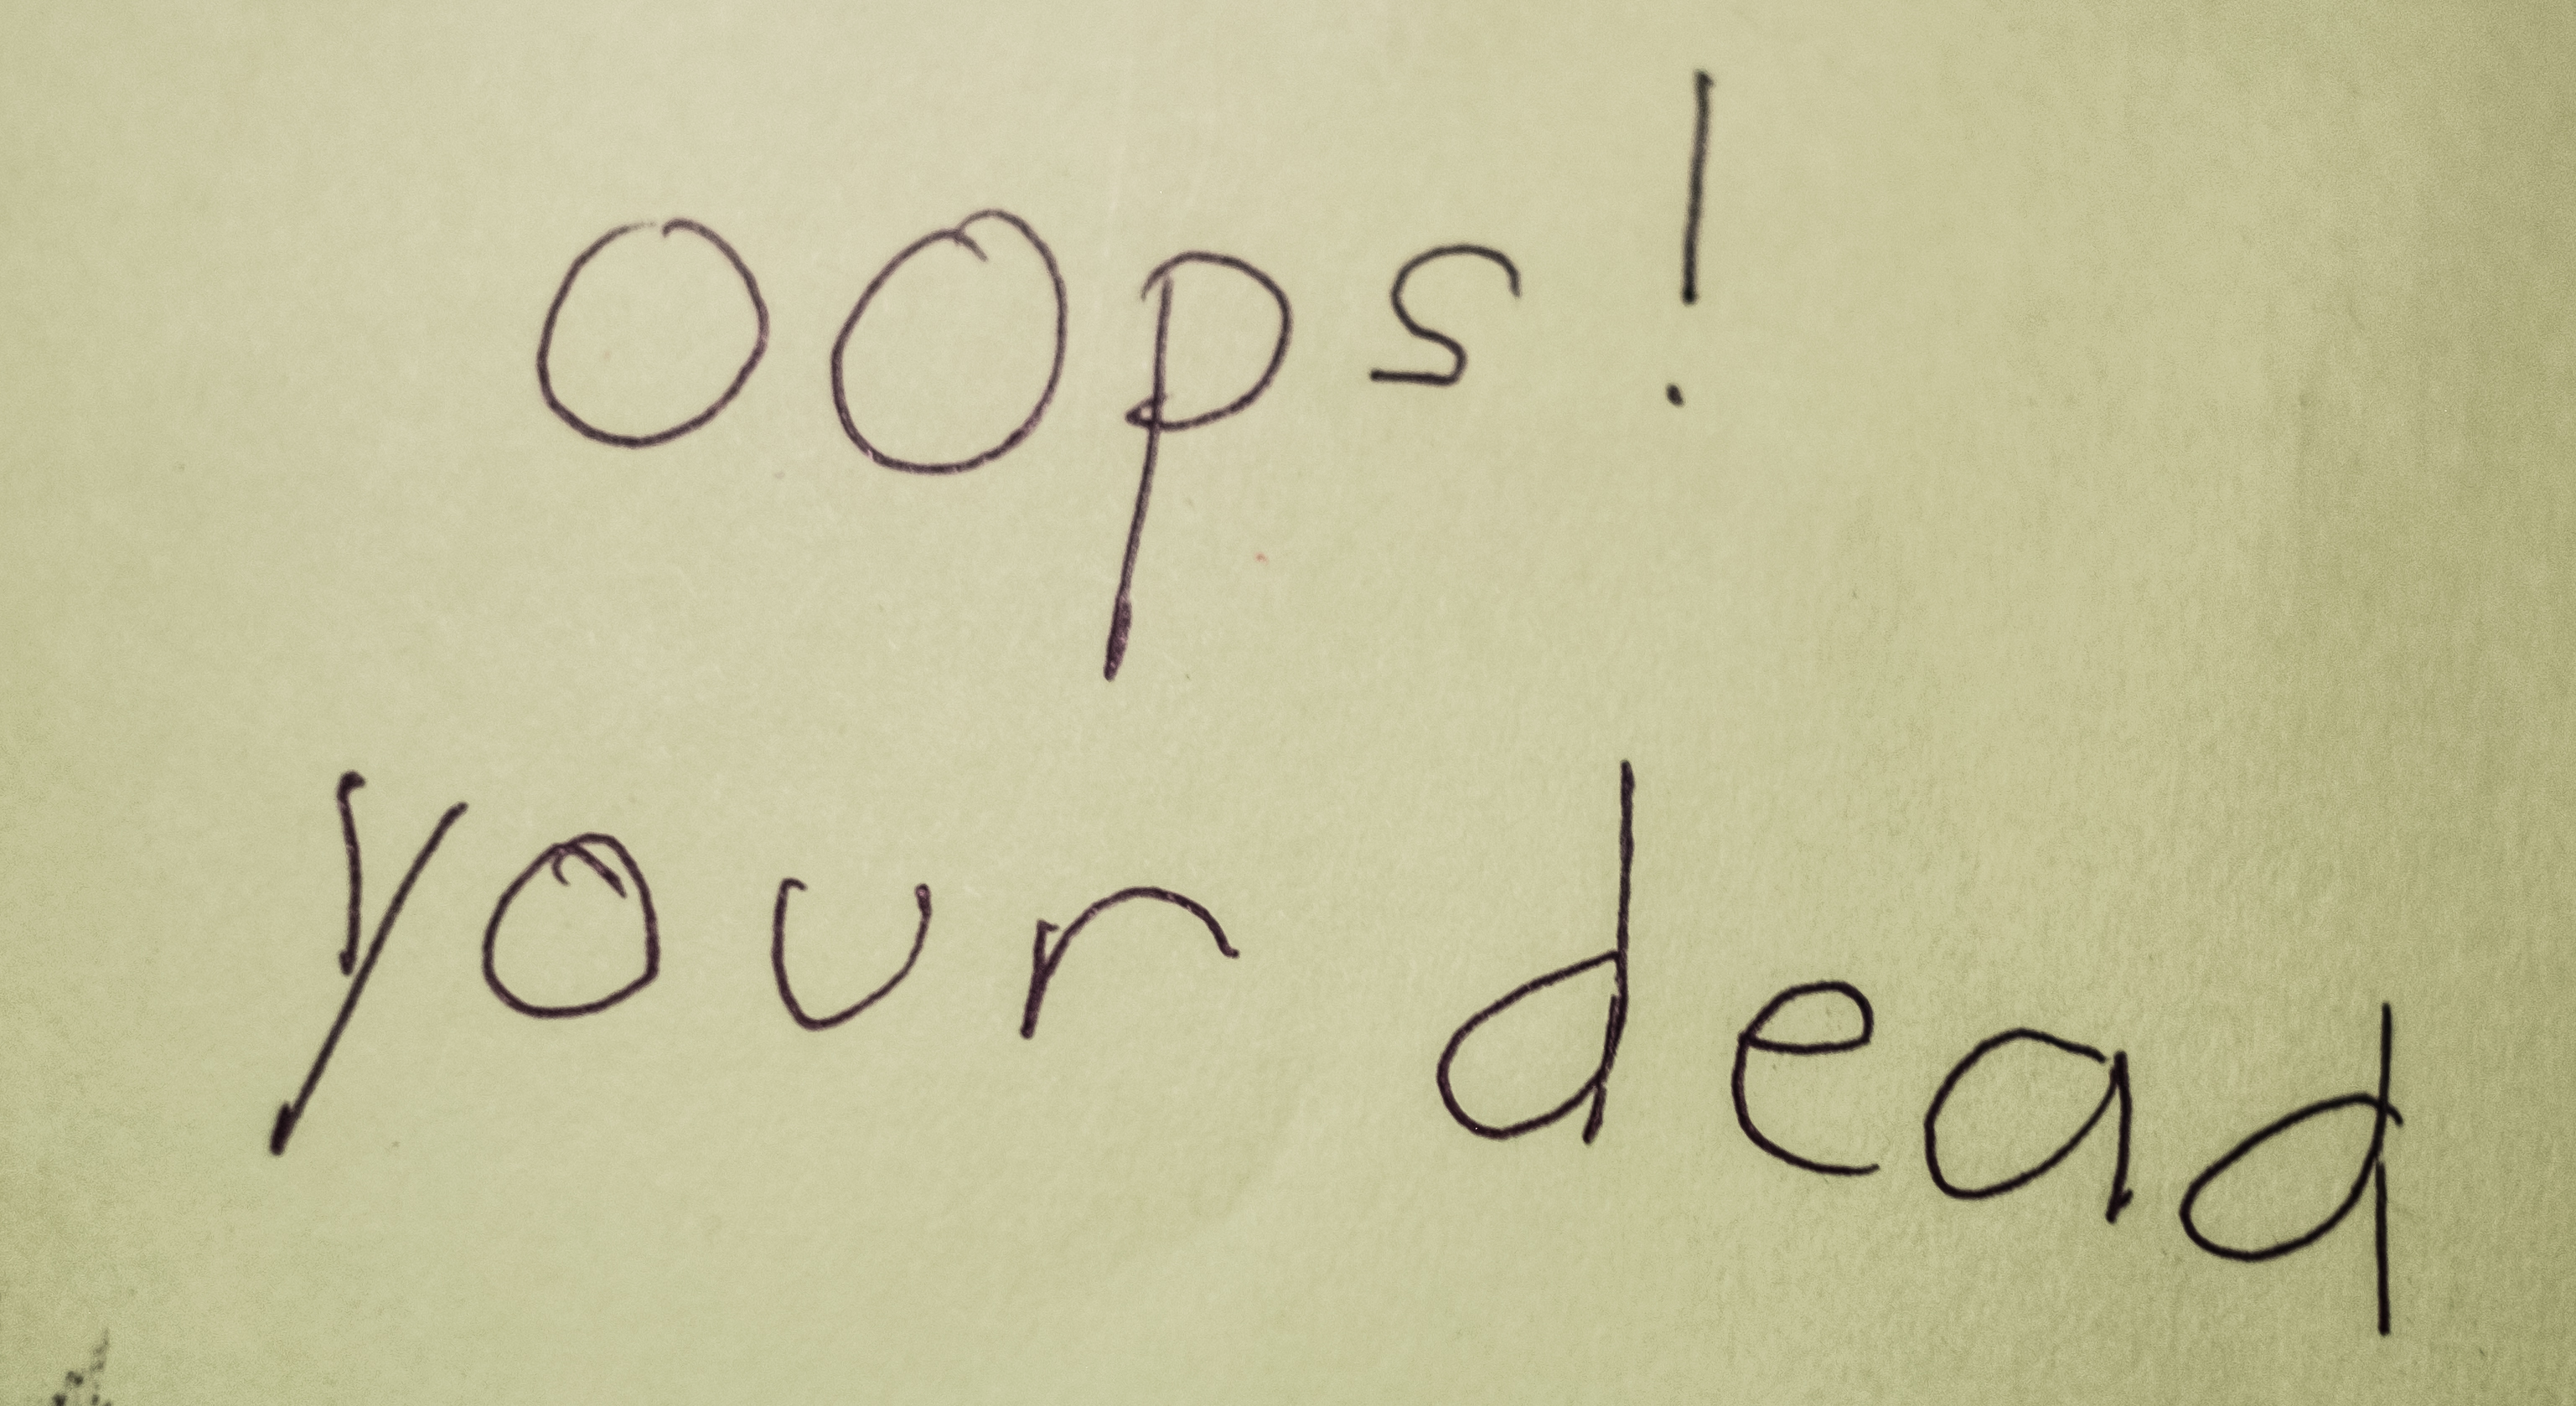 oops!
your dead